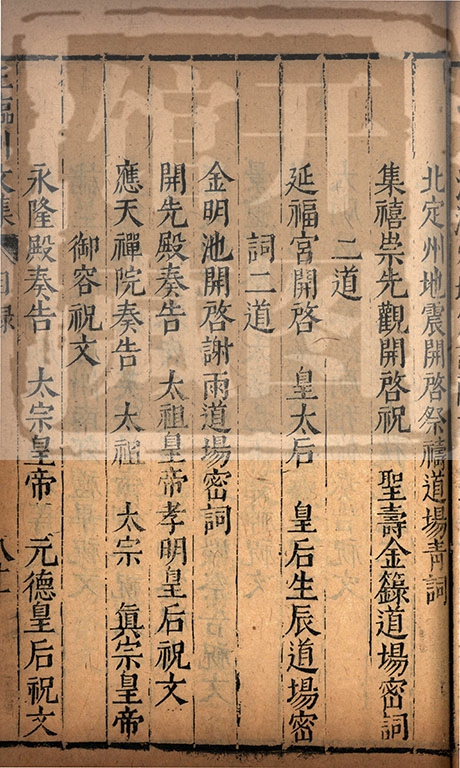 北定州地震開啓祭禱道場青詞
集禧崇先觀開啓祝　聖壽金籙道場密詞
二道
延福宮開啓　皇太后　皇后生辰道場密
詞二道
金明池開啓謝雨道場密詞
開先殿奏告　太祖皇帝孝明皇后祝文
應天禪院奏告　太祖　太宗　眞宗皇帝
御容祝文
永隆殿奏告　太宗皇帝　元德皇后祝文
王臨川文集　目録